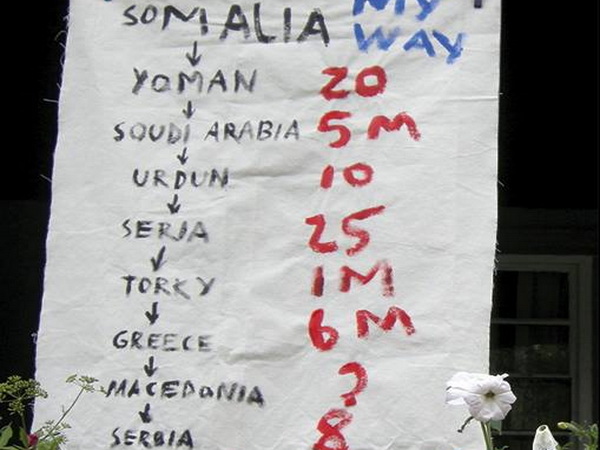 SOMALIA MY
WAY
YOMAN 20
SOUDI ARABIA 5 M
URDUN 10
SERJA 25
TORKY 1 M
GREECE 6 M
MACEDONIA ?
SERBIA 8